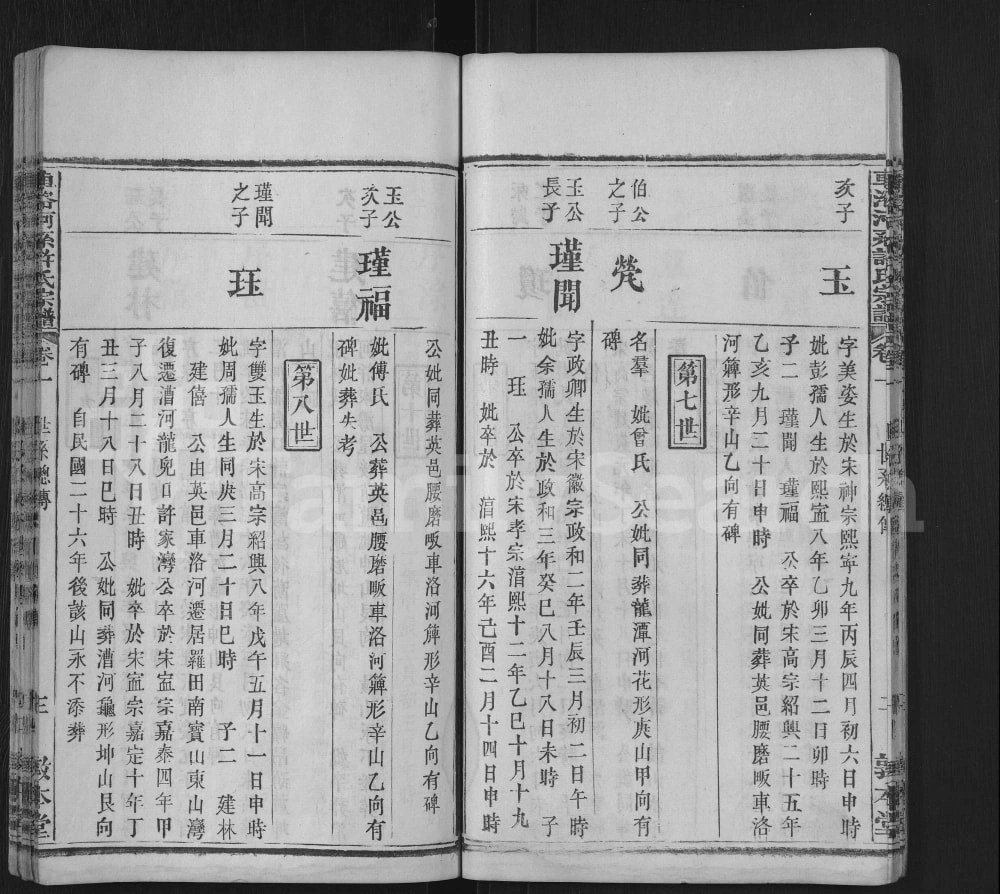 車洛河孫許氏宗譜 卷一
世系總傳
敦本堂
次子
玉
字美姿生於宋神宗熙寧九年丙辰四月初六日申時
妣彭孺人生於熙寍八年乙卯三月十二日卯時
子二 瑾聞 瑾福 公卒於宋高宗紹興二十五年
乙亥九月二十日申時 公妣同葬英邑腰磨畈車洛
河簰形辛山乙向有碑
第七世
伯公之子
㷀
名羣 妣曾氏 公妣同葬龍潭河花形庚山甲向有
碑
玉公長子
瑾聞
字政卿生於宋徽宗政和二年壬辰三月初二日午時
妣余孺人生於政和三年癸巳八月十八日未時 子
一 珏 公卒於宋孝宗淳熙十二年乙巳十月十九
丑時 妣卒於 淳熙十六年己酉二月十四日申時
公妣同葬英邑腰磨畈車洛河簰形辛山乙向有碑
玉公次子
瑾福
妣傅氏 公葬英邑腰磨畈車洛河簰形辛山乙向有
碑妣葬失考
第八世
瑾聞之子
珏
字雙玉生於宋高宗紹興八年戊午五月十一日申時
妣周孺人生同庚三月二十日巳時 子二 建林
建僖 公由英邑車洛河遷居羅田南寳山東山灣
復遷漕河龍兒口許家灣公卒於宋寍宗嘉泰四年甲
子八月二十八日丑時 妣卒於宋寍宗嘉定十年丁
丑三月十八日巳時 公妣同葬漕河龜形坤山艮向
有碑 自民國二十六年後該山永不添葬
車洛河孫許氏宗譜 卷一
世系總傳
三
敦本堂